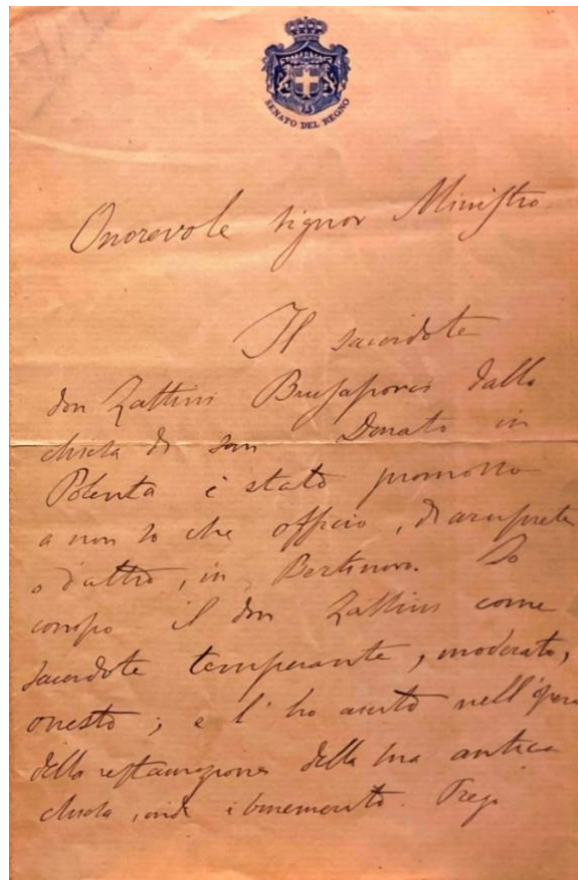 SENATO DEL REGNO
Onorevole signor Ministro
Il sacerdote
don Zattini dalla
chiesa di san Donato in
Polenta è stato promosso
a non so che officio, di arciprete
o d'altro, in Bertinoro. Io
conosco il don Zattini come
sacerdote temperante, moderato,
onesto; e l'ho aiuto nell'opera
della restaurazione della sua antica
chiesa, onde è benemerito. Prego